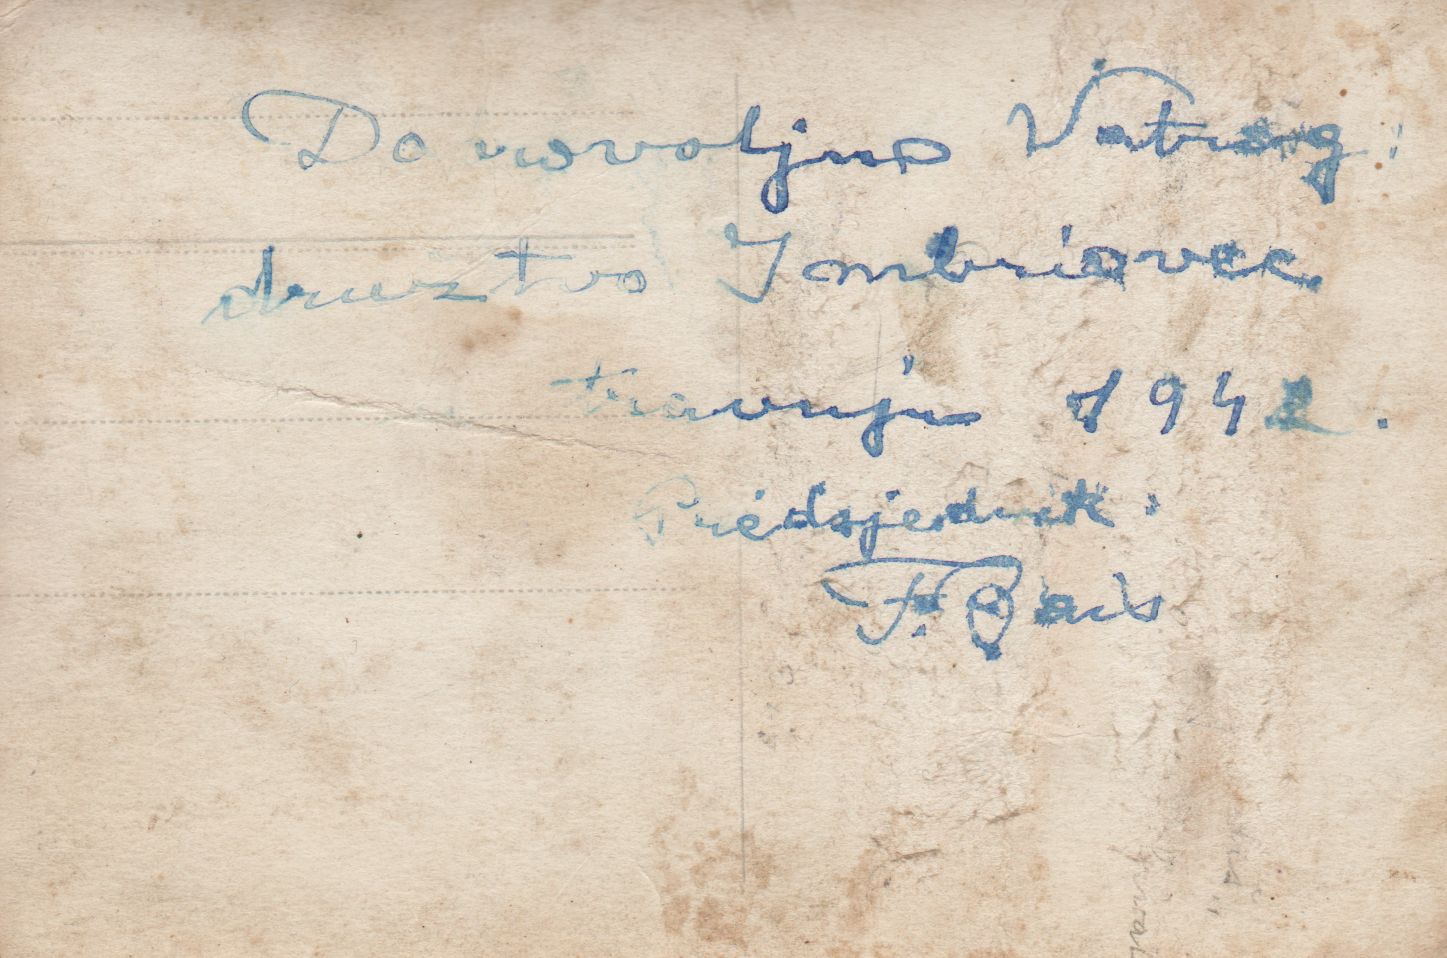 Dovovoljno Vatrog.
društvo Imbriovec
u travnju 1942.
Predsjednik:
F. Bais